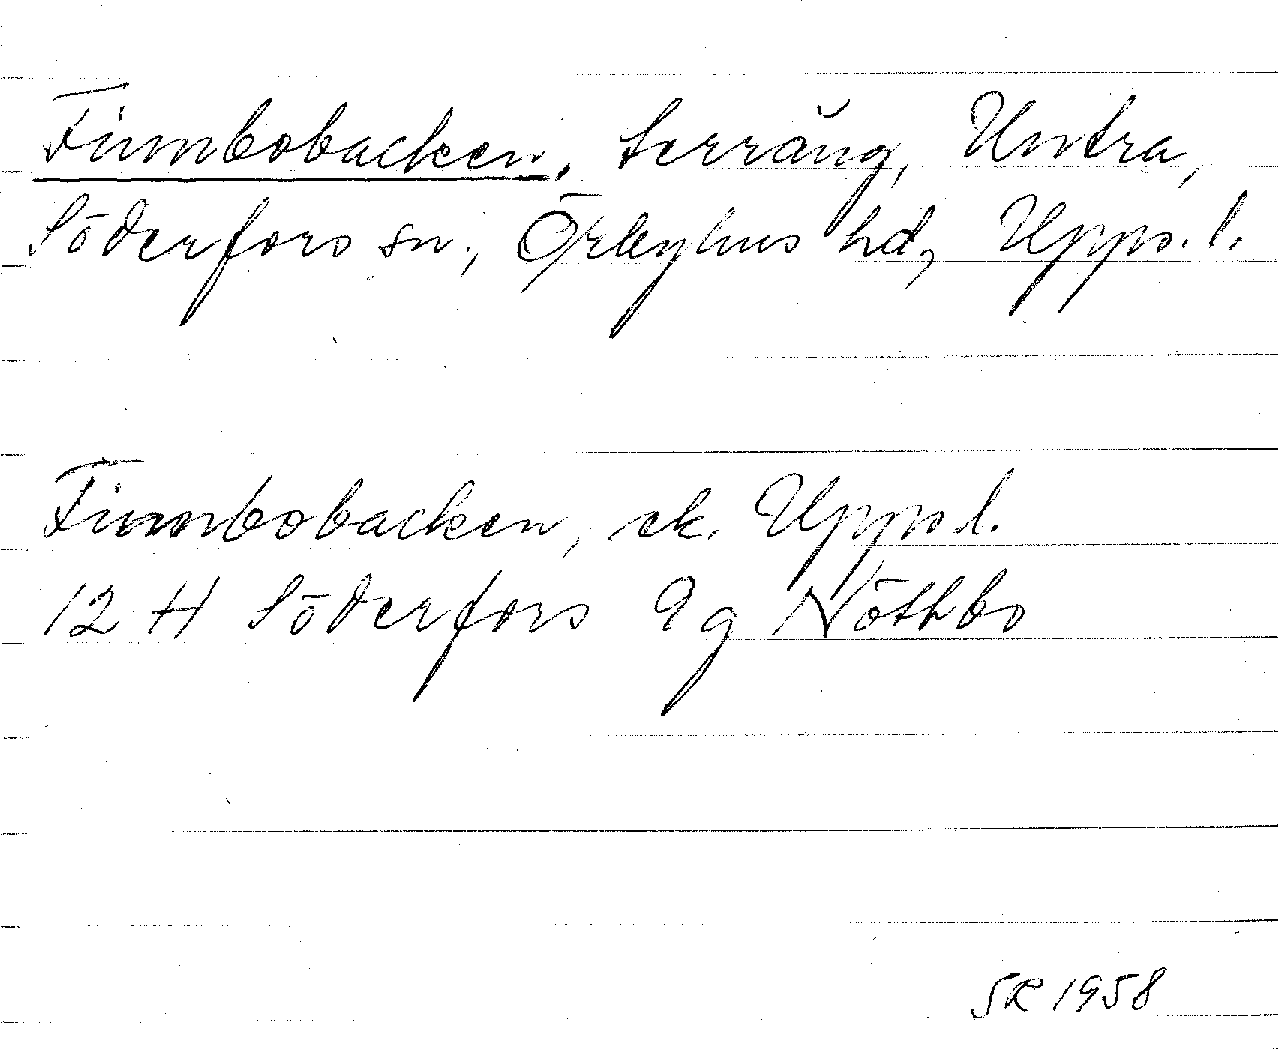 Finnbobacken, terräng, Untra,
Söderfors sn, Örbyhus hd, Upps. l.
Finnbobacken, ek. Upps l.
12 H Söderfors 9g Nöthbo
SR 1958